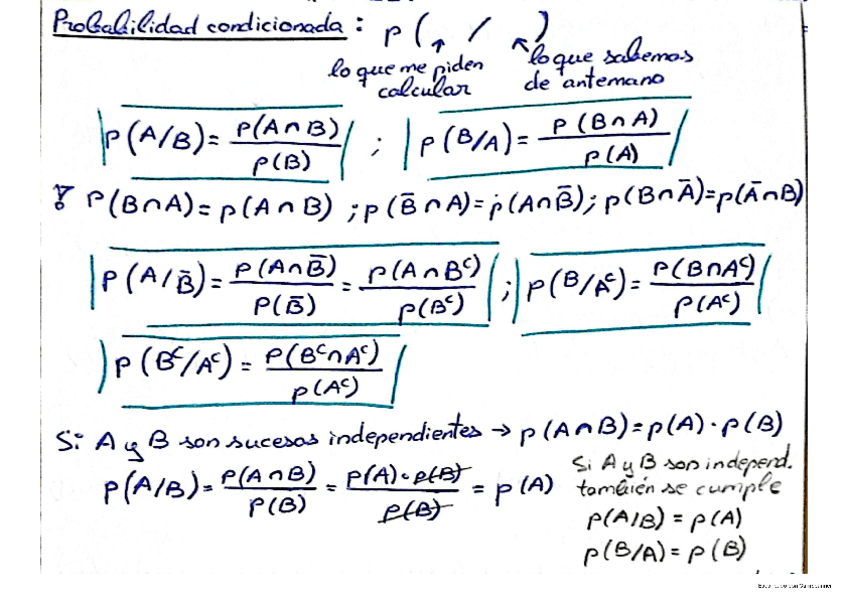 Probabilidad condicionada : p( / )
lo que me piden calcular
lo que sabemos de antemano
p(A/B) = p(A∩B) / p(B) ; p(B/A) = p(B∩A) / p(A)
p(B∩A) = p(A∩B) ; p(B̄∩A) = p(A∩B̄) ; p(B∩Ā) = p(Ā∩B)
p(A/B̄) = p(A∩B̄) / p(B̄) = p(A∩Bᶜ) / p(Bᶜ) ; p(B/Aᶜ) = p(B∩Aᶜ) / p(Aᶜ)
p(Bᶜ/Aᶜ) = p(Bᶜ∩Aᶜ) / p(Aᶜ)
Si A y B son sucesos independientes → p(A∩B) = p(A) · p(B)
p(A/B) = p(A∩B) / p(B) = p(A) · p(B) / p(B) = p(A)
Si A y B son independ.
también se cumple
p(A/B) = p(A)
p(B/A) = p(B)